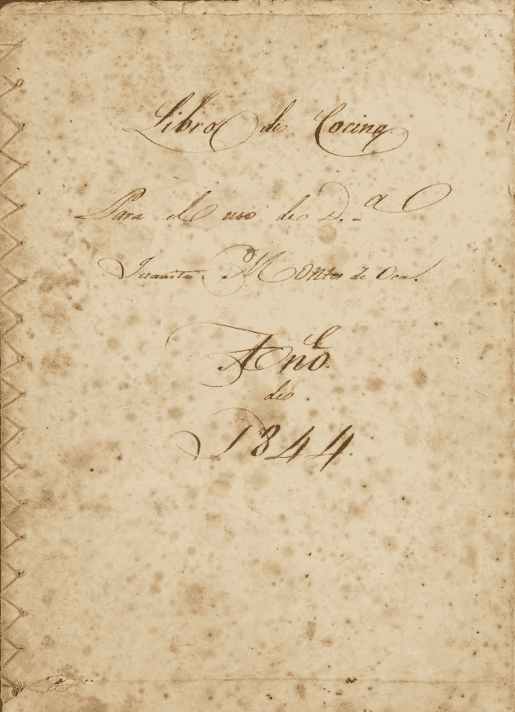 Libro de Cocina
Para el uso de D.ª
Juanita Montes de Oca.
Año
de
1844